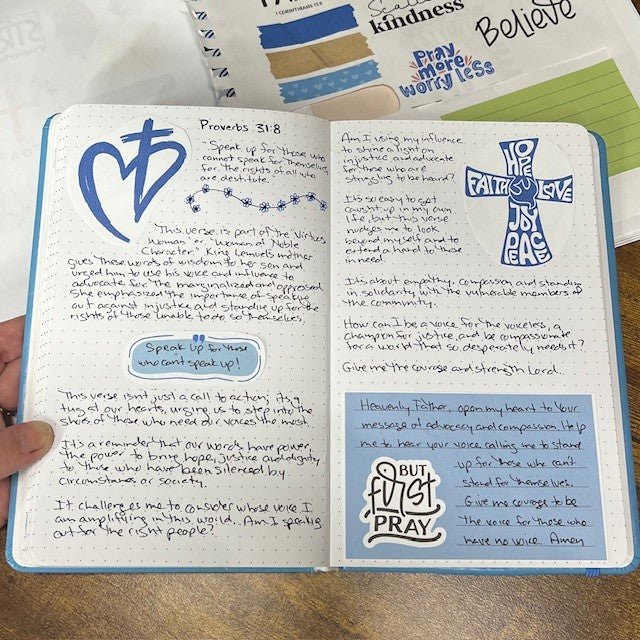 1 CORINTHIANS 13:8
kindness
Believe
pray
more
worry less
Proverbs 31:8
"Speak up for those who
cannot speak for themselves
for the rights of all who
are destitute.
This verse is part of the Virtuos
Woman or "Woman of Noble
Character." King Lemuels mother
gives these words of wisdom to her son and
urged him to use his voice and influence to
advocate for the marginalized and oppressed.
She emphasized the importance of speaking
out against injustice and standing up for the
rights of those unable to do so themselves.
Speak up for those
who can't speak up!
This verse isn't just a call to action; it's a
tug at our hearts, urging us to step into the
shoes of those who need our voices the most.
It's a reminder that our words have power,
the power to bring hope, justice and dignity
to those who have been silenced by
circumstances or society.
It challenges me to consider whose voice I
am amplifying in this world. Am I speaking
out for the right people?
Am I using my influence
to shine a light on
injustice and advocate
for those who are
struggling to be heard?
It's so easy to get
caught up in my own
life, but this verse
nudges me to look
beyond myself and to
extend a hand to those
in need.
It's about empathy, compassion and standing
in solidarity with the vulnerable members of
the community.
How can I be a voice for the voiceless, a
champion for justice, and be compassionate
for a world that so desperately needs it?
Give me the courage and strength Lord.
HOPE
FAITH LOVE
JOY
PEACE
Heavenly Father, open my heart to Your
message of advocacy and compassion. Help
me to hear your voice calling me to stand
up for those who can't
stand for themselves.
Give me courage to be
the voice for those who
have no voice. Amen
BUT
first
PRAY